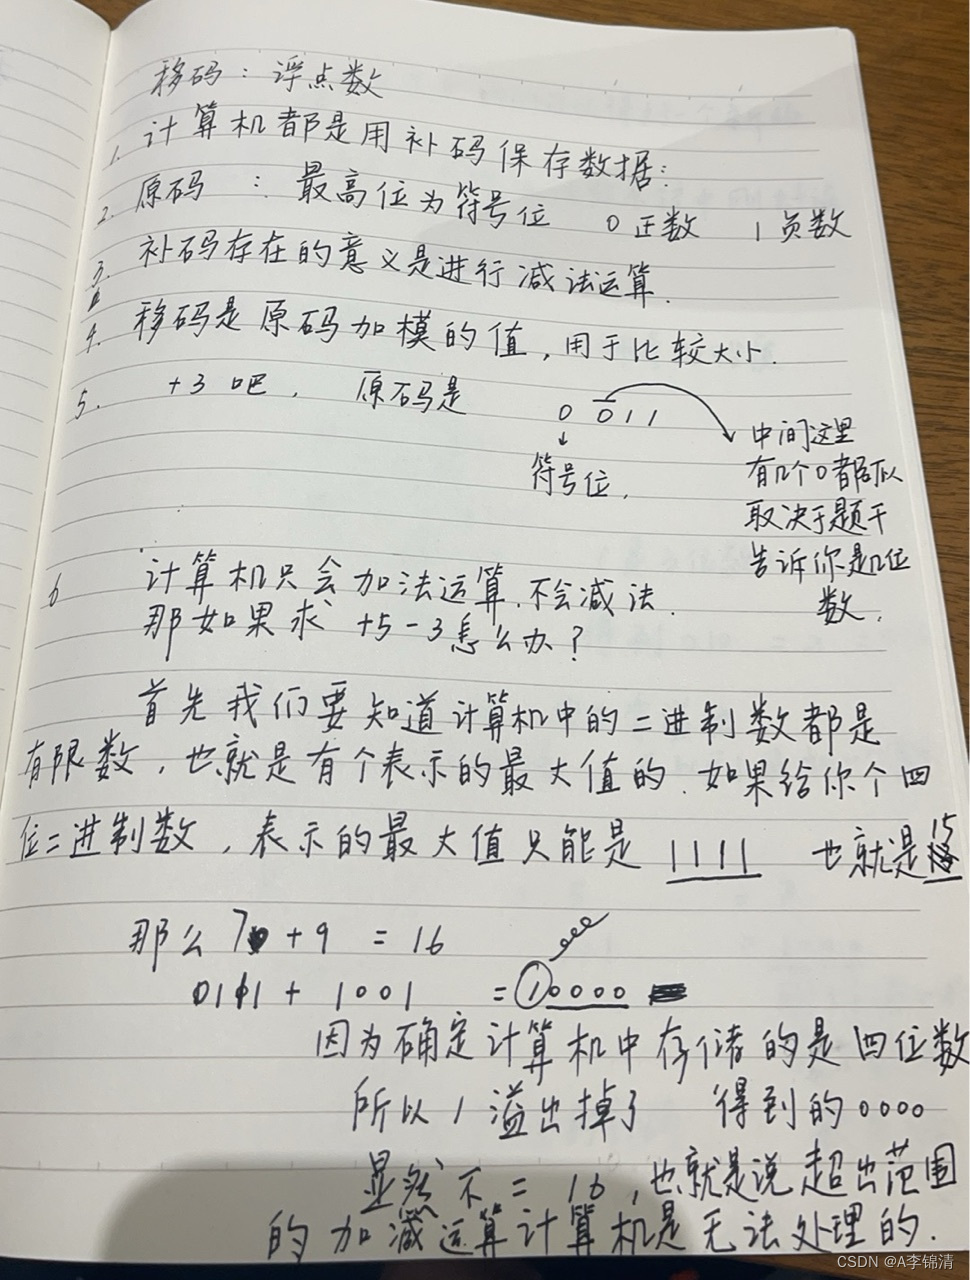 移码：浮点数
1. 计算机都是用补码保存数据：
2. 原码 ： 最高位为符号位 0正数 1负数
3. 补码存在的意义是进行减法运算.
4. 移码是原码加模的值，用于比较大小.
5. +3吧， 原码是 0 0 1 1
符号位，
中间这里
有几个0都可以
取决于题干
告诉你是几位
数.
6 计算机只会加法运算.不会减法.
那如果求 +5-3怎么办？
首先我们要知道计算机中的二进制数都是
有限数，也就是有个表示的最大值的.如果给你个四
位二进制数，表示的最大值只能是 1111 也就是15
那么 7+9 = 16
0111 + 1001 = 10000
因为确定计算机中存储的是四位数
所以1溢出掉了 得到的0000
显然不=16，也就是说超出范围
的加减运算计算机是无法处理的.
CSDN @A李锦清